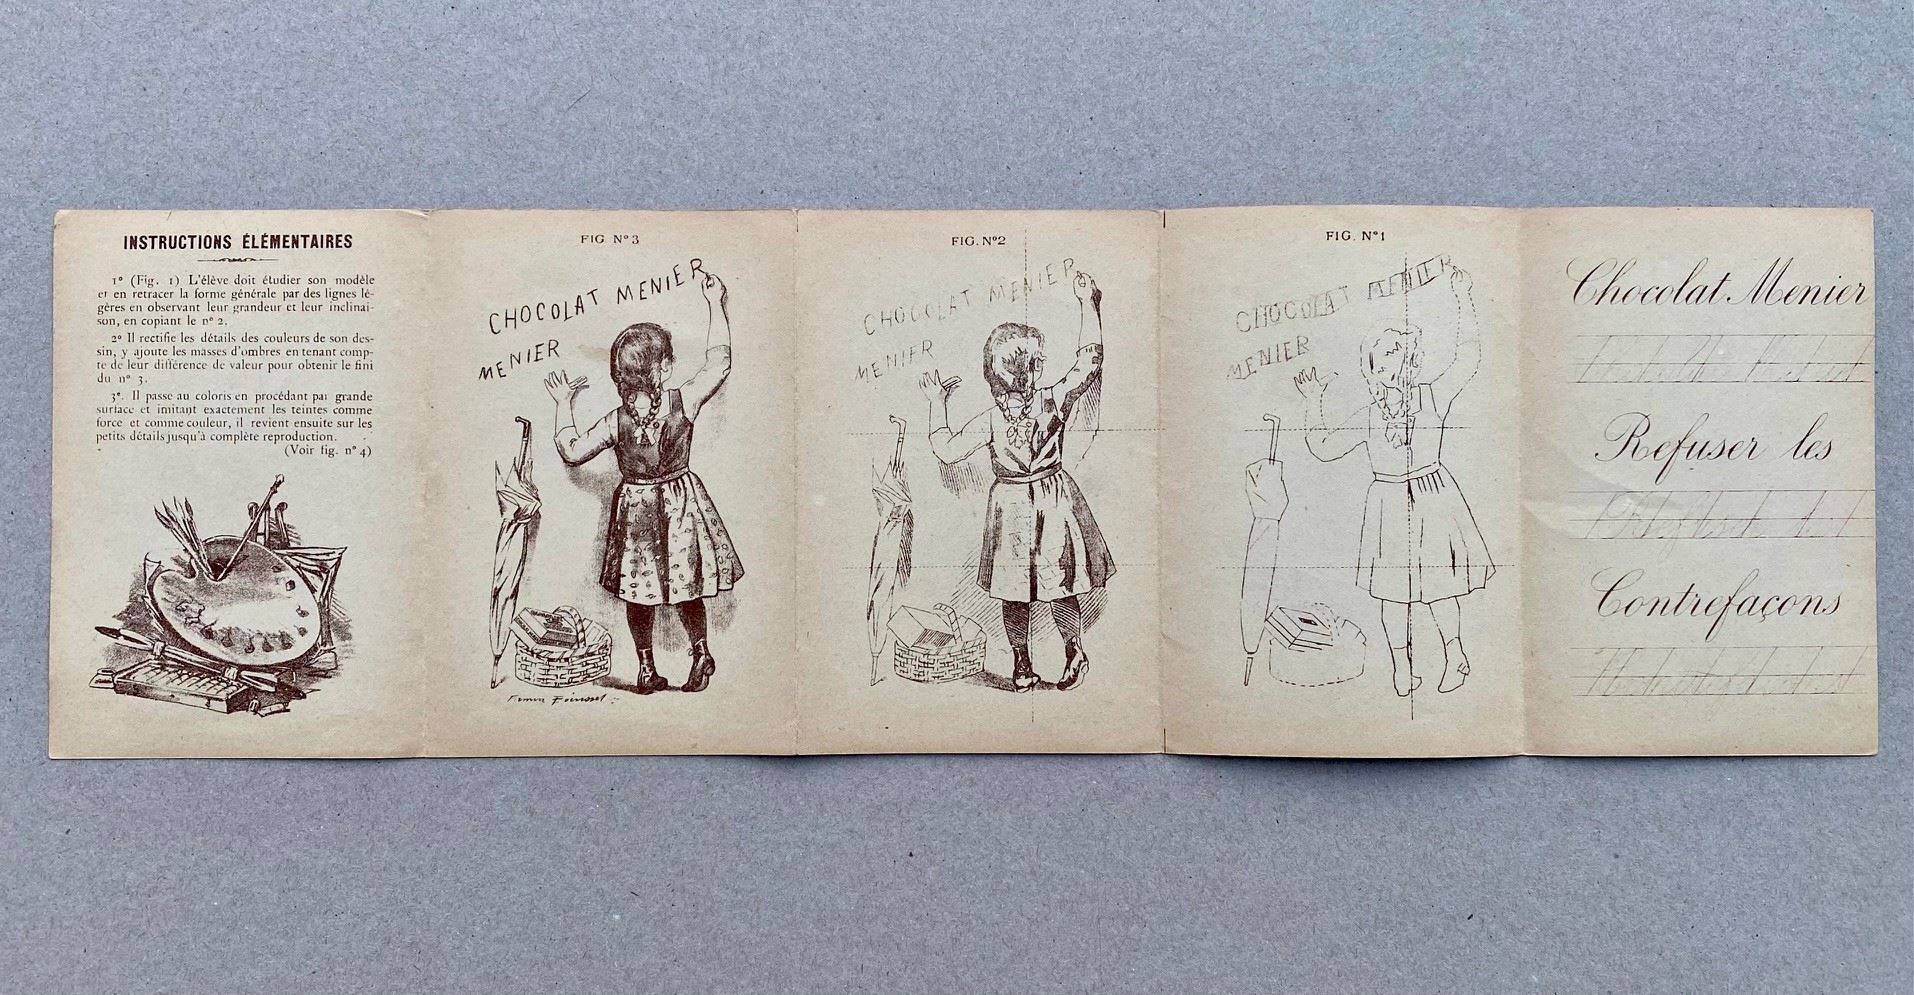 INSTRUCTIONS ÉLÉMENTAIRES
1º (Fig. 1) L'élève doit étudier son modèle
et en retracer la forme générale par des lignes lé-
gères en observant leur grandeur et leur inclinai-
son, en copiant le nº 2.
2º Il rectifie les détails des couleurs de son des-
sin, y ajoute les masses d'ombres en tenant comp-
te de leur différence de valeur pour obtenir le fini
du nº 3.
3º. Il passe au coloris en procédant par grande
surface et imitant exactement les teintes comme
force et comme couleur, il revient ensuite sur les
petits détails jusqu'à complète reproduction.
(Voir fig. nº 4)
FIG Nº 3
CHOCOLAT MENIER
MENIER
FIG. Nº 2
CHOCOLAT MENIER
MENIER
FIG. Nº 1
CHOCOLAT MENIER
MENIER
Chocolat Menier
Refuser les
Contrefaçons